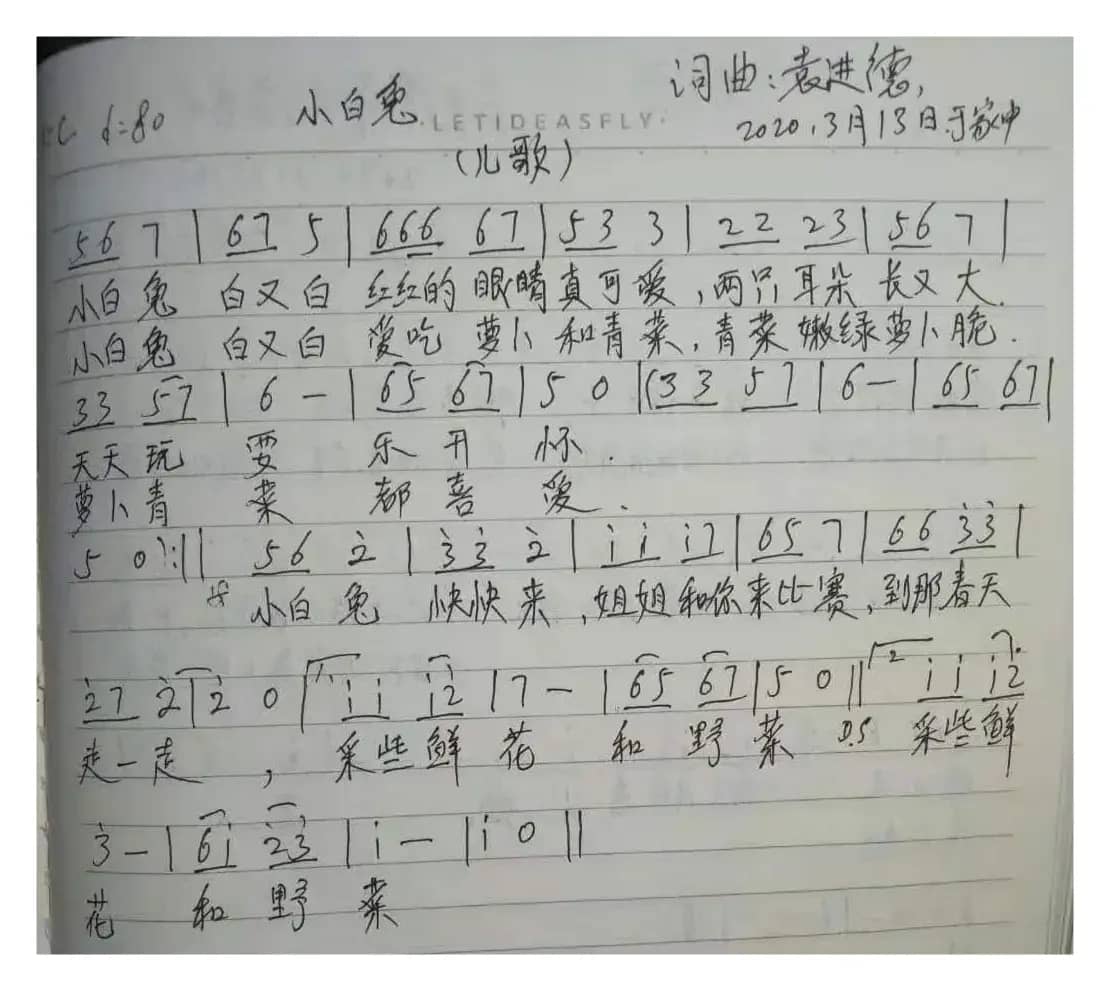 词曲:袁进德,
=C d=80 小白兔 ·LETIDEASFLY·
2020.3月13日于家中
(儿歌)
56 7 | 67 5 | 666 67 | 53 3 | 22 23 | 56 7 |
小白兔 白又白 红红的 眼睛真可爱,两只耳朵 长又大.
小白兔 白又白 爱吃 萝卜 和青菜,青菜 嫩绿萝卜脆.
33 57 | 6 - | 65 67 | 5 0 |(33 57 | 6 - | 65 67 |
天天玩 耍 乐开 怀.
萝卜青 菜 都喜 爱.
5 0):|| 56 2̇ | 3̇3̇ 2̇ | i i i7 | 65 7 | 66 3̇3̇ |
小白兔 快快来,姐姐和你来比赛,到那春天
2̇7 2̇ | 2̇ 0 | 1. i i i2̇ | 7 - | 65 67 | 5 0 || 2 i i i2̇
走一走 , 采些鲜 花 和 野 菜 D.S 采些鲜
3̇ - | 6i 2̇3̇ | i - | i 0 ||
花 和 野 菜